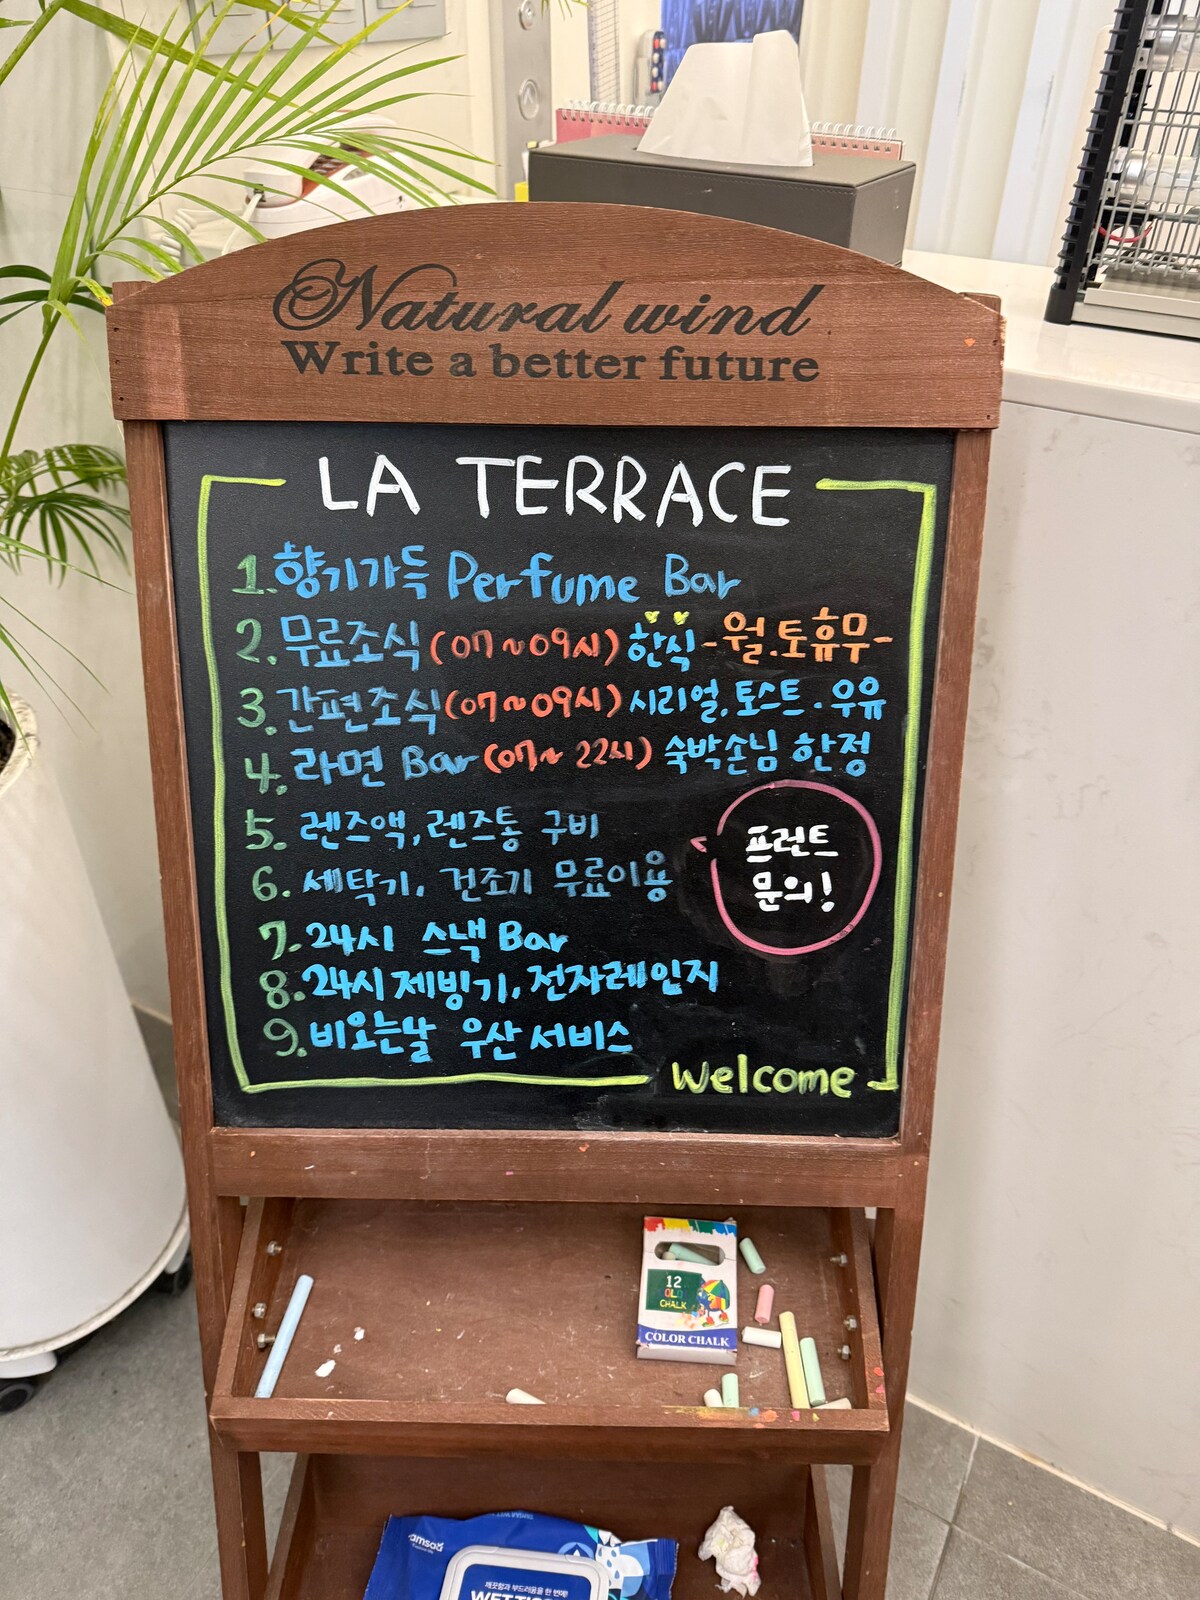 Natural wind
Write a better future
LA TERRACE
1. 향기가득 Perfume Bar
2. 무료조식 (07~09시) 한식 -월.토휴무-
3. 간편조식 (07~09시) 시리얼.토스트.우유
4. 라면 Bar (07~22시) 숙박손님 한정
5. 렌즈액, 렌즈통 구비
6. 세탁기, 건조기 무료이용
프런트
문의!
7. 24시 스낵 Bar
8. 24시 제빙기, 전자레인지
9. 비오는날 우산 서비스
Welcome
12
CHALK
COLOR CHALK
깨끗함과 부드러움을 한 번에!